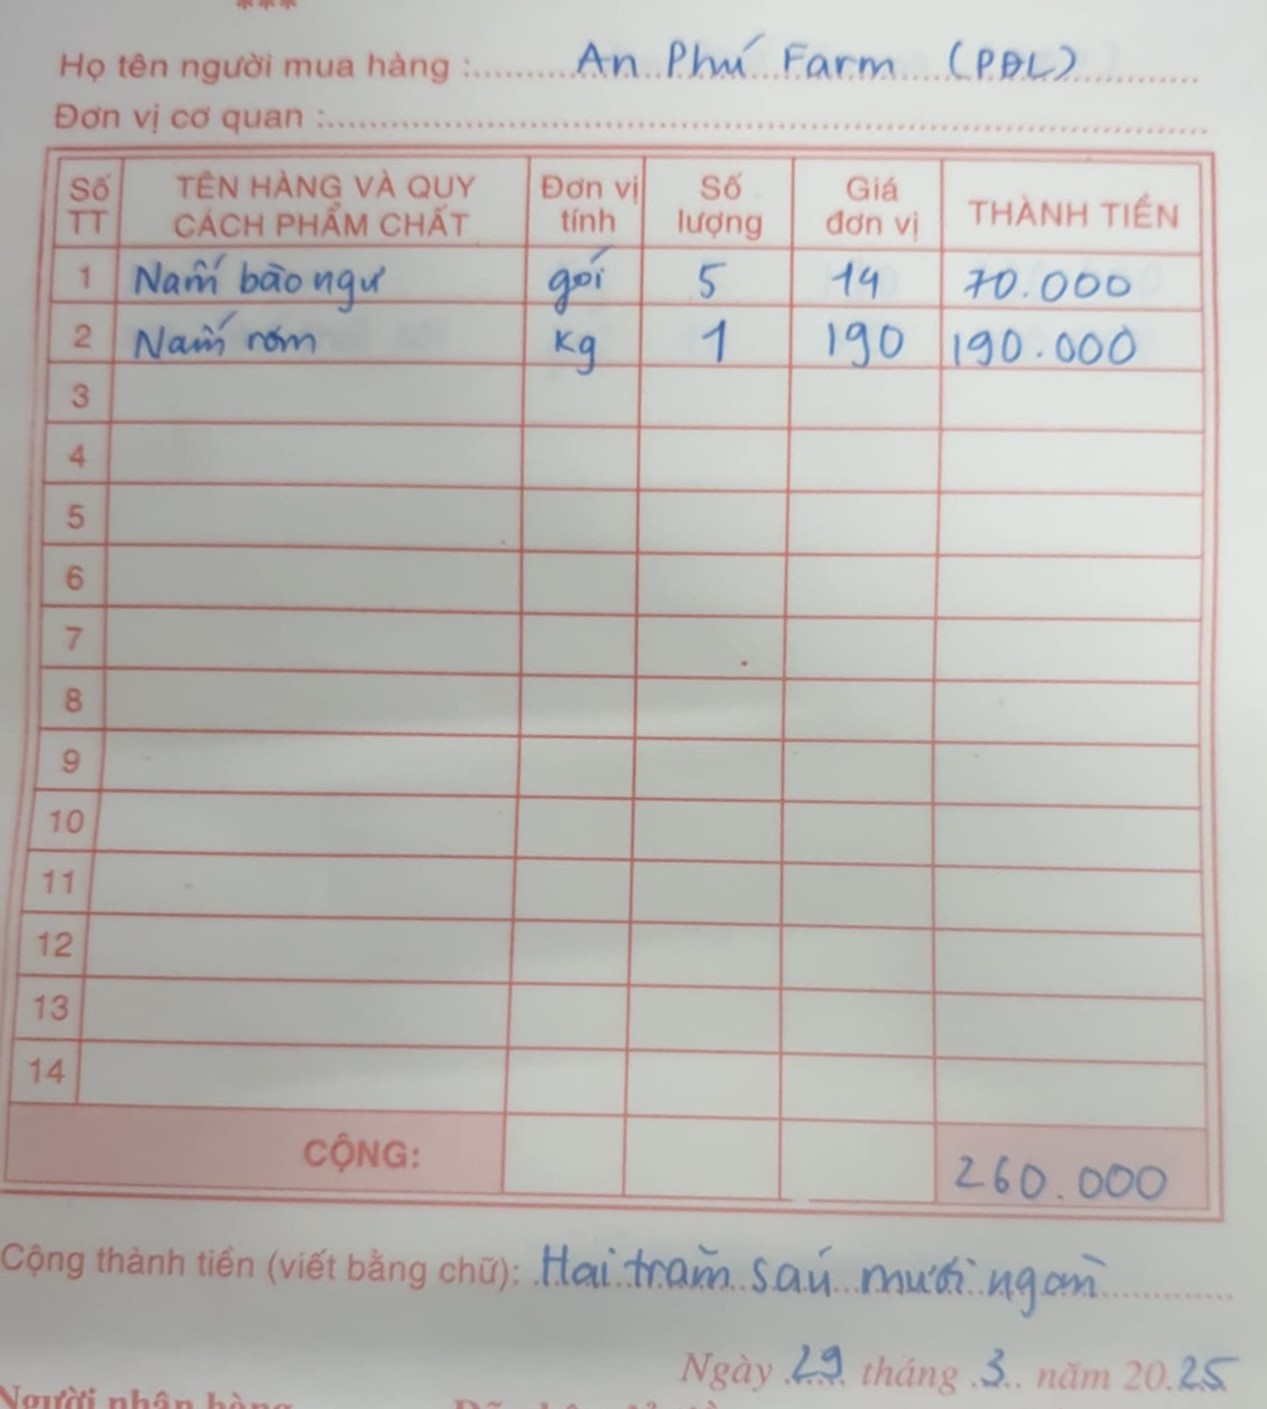 ***
Họ tên người mua hàng : An Phú Farm (PĐL)
Đơn vị cơ quan :
Số TT TÊN HÀNG VÀ QUY CÁCH PHẨM CHẤT Đơn vị tính Số lượng Giá đơn vị THÀNH TIỀN
1 Nấm bào ngư gói 5 14 70.000
2 Nấm rơm kg 1 190 190.000
3
4
5
6
7
8
9
10
11
12
13
14
CỘNG: 260.000
Cộng thành tiền (viết bằng chữ): Hai trăm sáu mươi ngàn
Ngày 29 tháng 3 năm 2025
Người nhận hàng